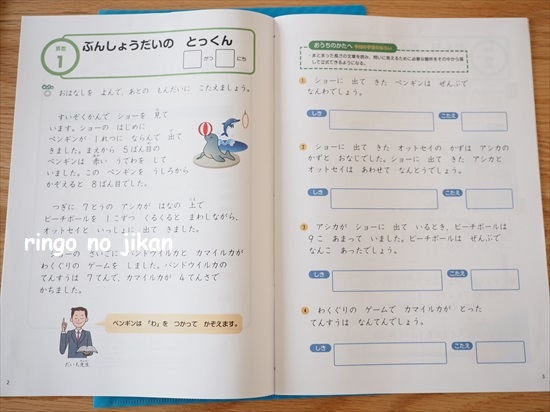 算数
1
ぶんしょうだいの とっくん
がつ
にち
おはなしを よんで、あとの もんだいに こたえましょう。
すいぞくかんで ショーを 見て
います。ショーの はじめに
ペンギンが 1れつに ならんで 出て
きました。まえから 5ばん目の
ペンギンは 赤い うでわを して
いました。この ペンギンを うしろから
かぞえると 8ばん目でした。
つぎに 7とうの アシカが はなの 上で
ビーチボールを 1こずつ くるくると まわしながら、
オットセイと いっしょに 出て きました。
ringo no jikan
ショーの さいごに バンドウイルカと カマイルカが
わくぐりの ゲームを しました。バンドウイルカの
てんすうは 7てんで、カマイルカが 4てんさで
かちました。
ペンギンは 「わ」を つかって かぞえます。
だいち先生
2
おうちのかたへ
まとまった長さの文章を読み、問いに答えるために必要な箇所をその中から探
して立式できるようになる。
1 ショーに 出て きた ペンギンは ぜんぶで
なんわでしょう。
しき
こたえ
2 ショーに 出て きた オットセイの かずは アシカの
かずと おなじでした。ショーに 出て きた アシカと
オットセイは あわせて なんとうでしょう。
しき
こたえ
3 アシカが ショーに 出て いるとき、ビーチボールは
9こ あまって いました。ビーチボールは ぜんぶで
なんこ あったでしょう。
しき
こたえ
4 わくぐりの ゲームで カマイルカが とった
てんすうは なんてんでしょう。
しき
こたえ
3